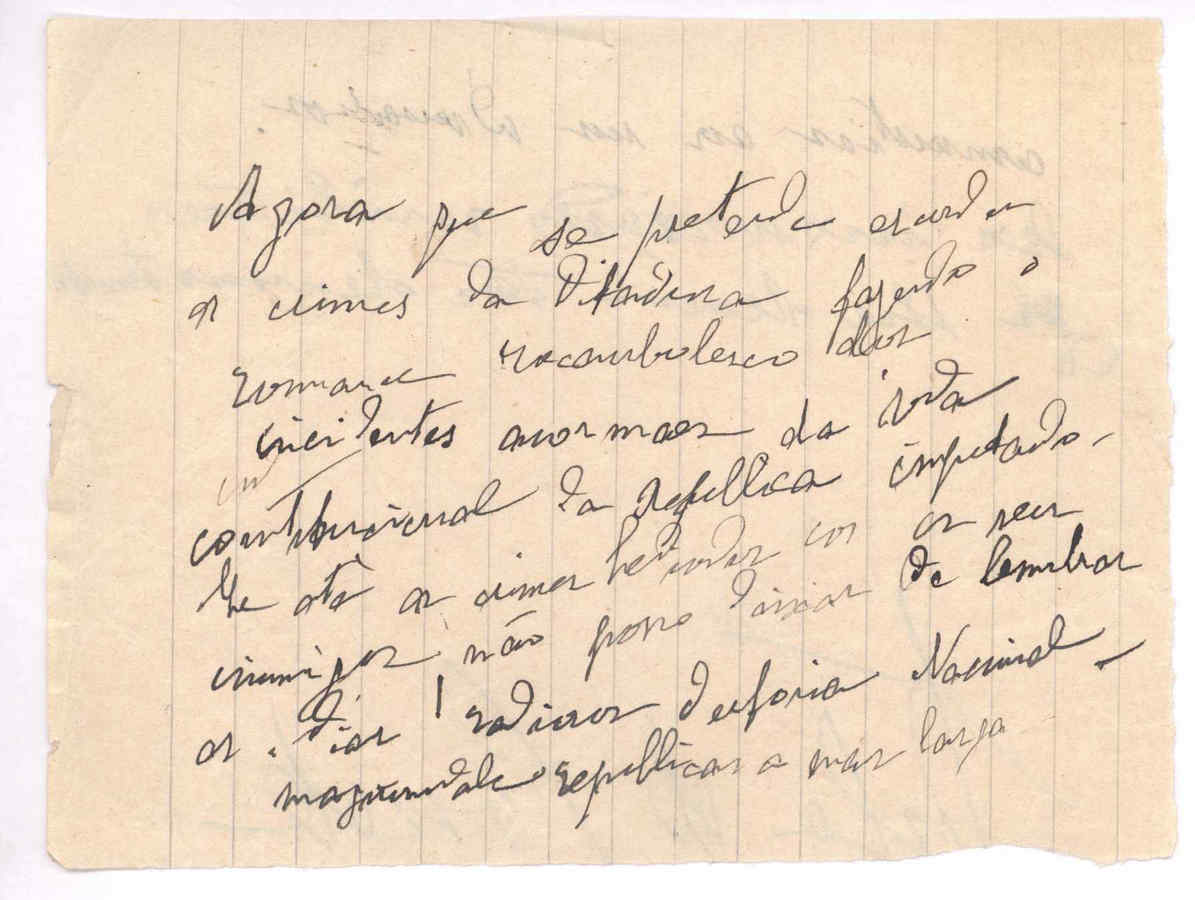 Agora que se pretende esconder
os crimes da Ditadura fazendo o
romance rocambolesco dos
incidentes anormaes da vida
constitucional da Republica imputando-
lhe até os crimes hediondos cos os seus
inimigos não posso deixar de lembrar
os dias radiosos d'euforia Nacional
magnanimidade republicana a mais larga